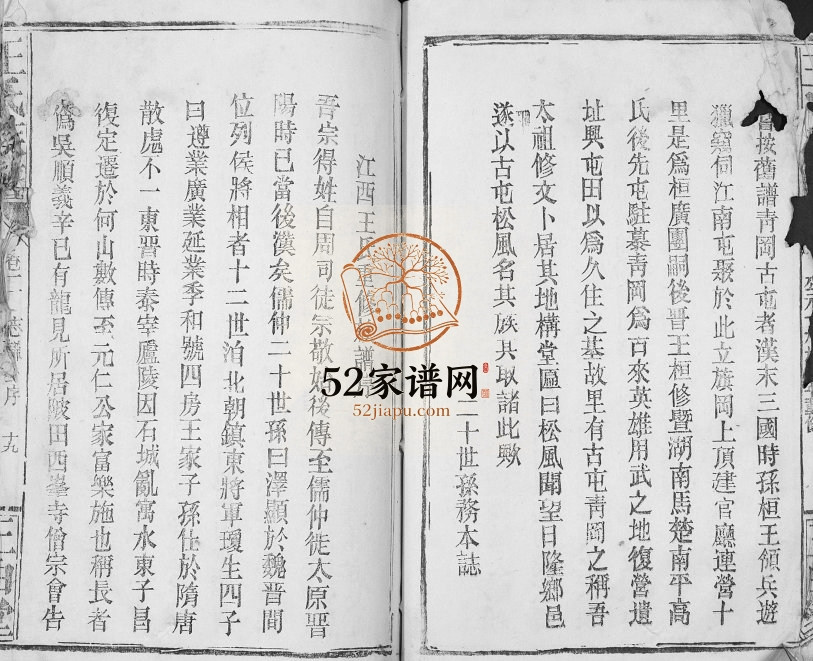 嘗按舊譜青岡古屯者漢末三國時孫桓王領兵遊
獵窺伺江南屯聚於此立旗岡上頂建官廳連營十
里是爲桓廣團嗣後晋王桓修暨湖南馬楚南平高
氏後先屯駐慕青岡爲古來英雄用武之地復營遺
址興屯田以爲久住之基故里有古屯青岡之稱吾
太祖修文卜居其地構堂匾曰松風聞望日隆鄉邑
遂以古屯松風名其族其取諸此歟
二十世孫務本誌
江西王氏重修譜
吾宗得姓自周司徒宗敬始後傳至儒仲徙太原晋
陽時已當後漢矣儒仲二十世孫曰澤顯於魏晋間
位列侯將相者十二世洎北朝鎮東將軍瓊生四子
曰遵業廣業延業季和號四房王家子孫仕於隋唐
散處不一東晋時泰宰廬陵因石城亂寓水東子昌
復定遷於何山數傳至元仁公家富樂施也稱長者
僞吳順義辛巳有龍見所居陂田西峯寺僧宗會告
王氏
卷一
志
序
十九
三田堂
52家谱网
52jiapu.com